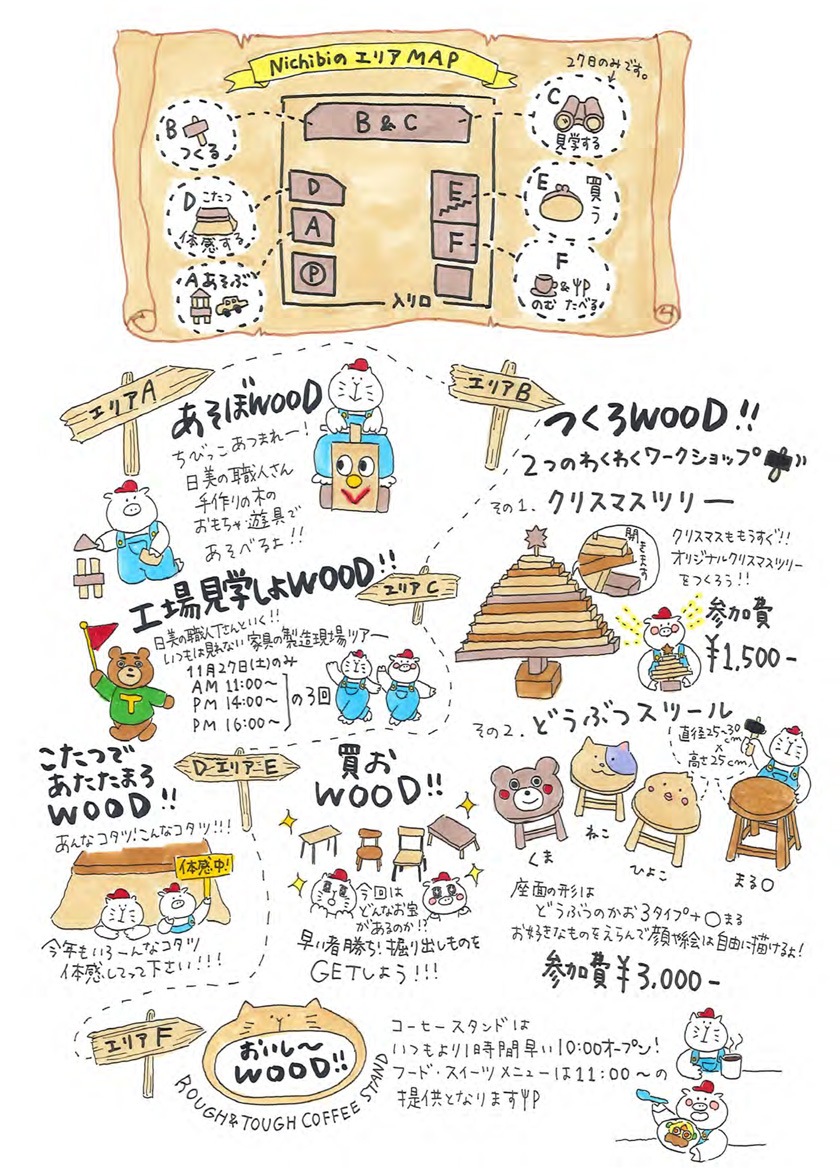 NichibiのエリアMAP
27日のみです。
B
つくる
B & C
C
見学する
D こたつ
体感する
D
E
E 買う
A
F
A あそぶ
P
入り口
F
&
のむ たべる
エリアA
あそぼWOOD
ちびっこあつまれー!
日美の職人さん
手作りの木の
おもちゃ・遊具で
あそべるよ!!
エリアB
つくろWOOD!!
2つのわくわくワークショップ
その1. クリスマスツリー
開きます
クリスマスももうすぐ!!
オリジナルクリスマスツリー
をつくろう!!
参加費
¥1,500-
工場見学しよWOOD!!
エリアC
日美の職人Tさんといく!!
いつもは見れない家具の製造現場ツアー
11月27日(土)のみ
AM 11:00～
PM 14:00～
PM 16:00～
の3回
T
その2. どうぶつスツール
直径25~30cm
×
高さ25cm
くま
ねこ
ひよこ
まる○
座面の形は
どうぶつのかお3タイプ+○まる
お好きなものをえらんで顔や絵は自由に描けるよ!
参加費¥3,000-
こたつで
あたたまろ
WOOD!!
D エリア E
あんなコタツ!こんなコタツ!!!
体感中!
今年もいろーんなコタツ
体感してって下さい!!!
買お
WOOD!!
今回は
どんなお宝
があるのか!?
早い者勝ち!掘り出しものを
GETしよう!!!
エリアF
おいし～
WOOD!!
ROUGH & TOUGH COFFEE STAND
コーヒースタンドは
いつもより1時間早い10:00オープン!
フード・スイーツメニューは11:00～の
提供となります